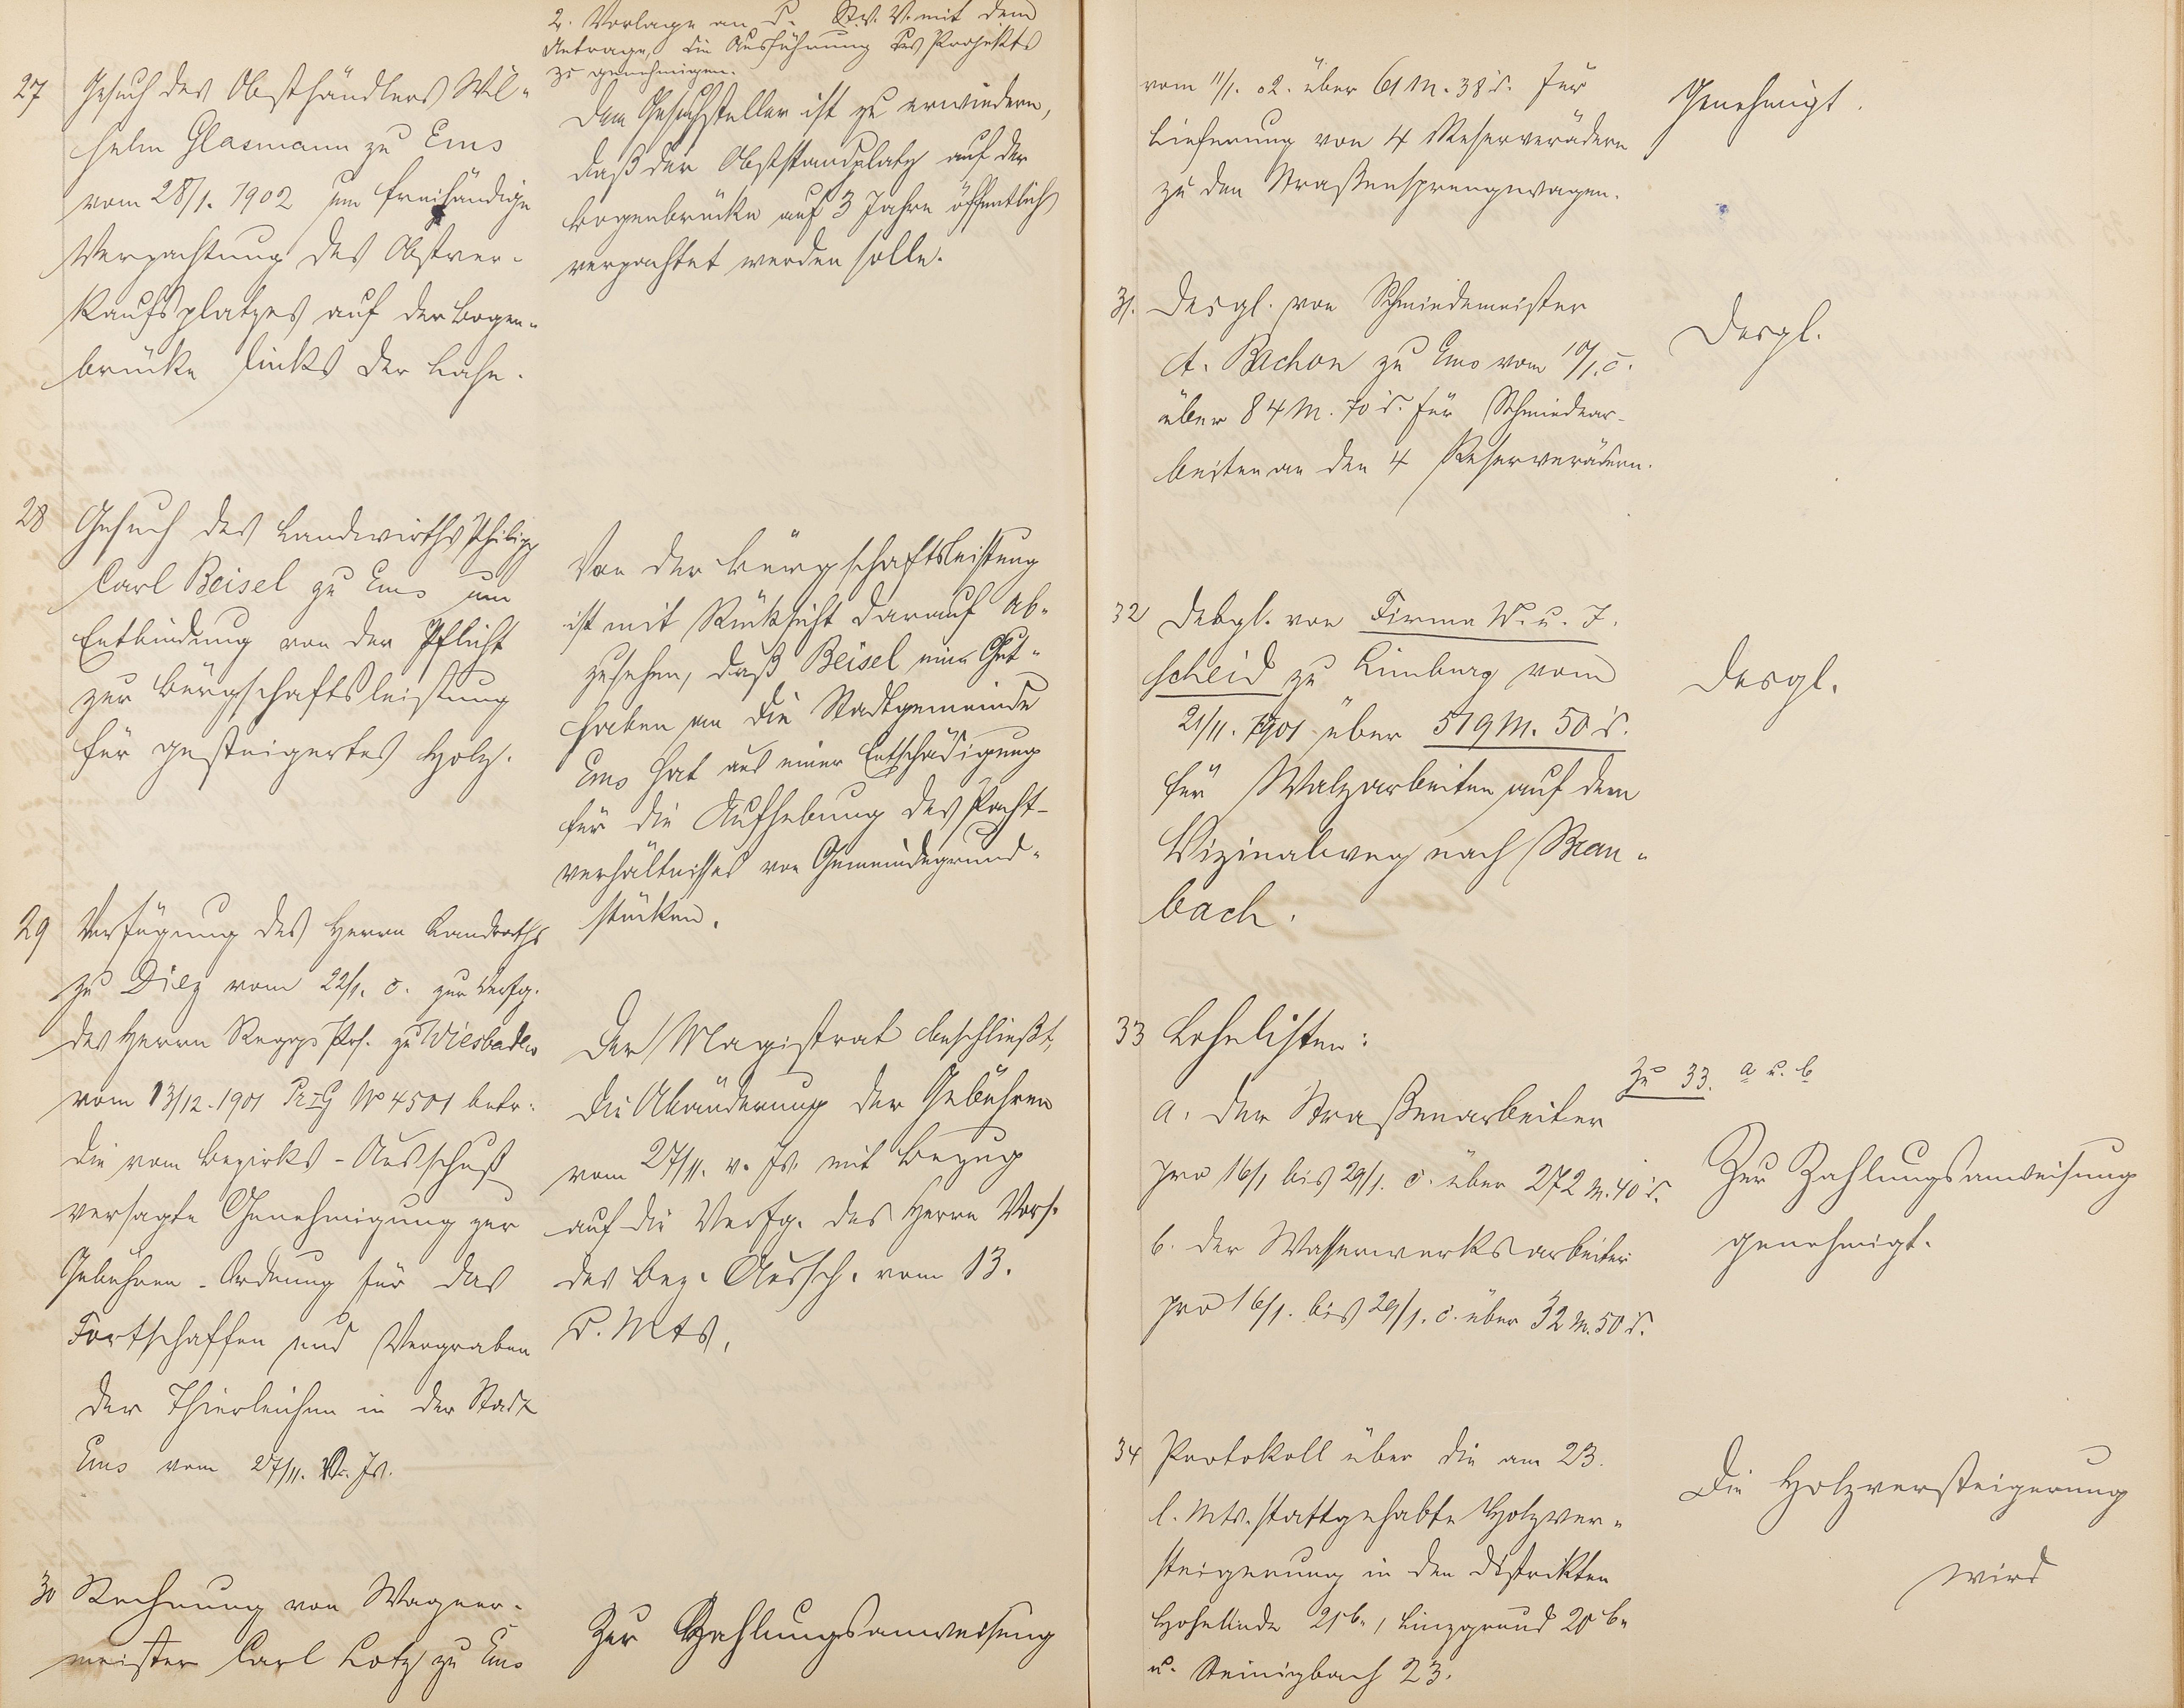 2. Vorlage an d. St. V. V. mit dem
Antrage, die Ausführung des Projekts
zu genehmigen.
27 Gesuch des Obsthändlers Wil-
helm Glasmann zu Ems
vom 28/1. 1902 um freihändige
Verpachtung des Obstver-
kaufsplatzes auf der Bogen-
brücke links der Lahn.
Dem Gesuchsteller ist zu erwiedern,
daß der Obststandplatz auf der
Bogenbrücke auf 3 Jahre öffentlich
verpachtet werden solle.
28 Gesuch des Landwirths Philipp
Carl Beisel zu Ems um
Entbindung von der Pflicht
zur Bürgschaftsleistung
für gesteigertes Holz.
Von der Bürgschaftsleistung
ist mit Rücksicht darauf ab-
zusehen, daß Beisel ein Gut-
haben an die Stadtgemeinde
Ems hat aus einer Entschädigung
für die Aufhebung des Pacht-
verhältnisses von Gemeindegrund-
stücken.
29 Verfügung des Herrn Landraths
zu Diez vom 22/1. c. zur Verfg.
des Herrn Reggs Prs. zu Wiesbaden
vom 13/12. 1901 Pr I G No 4501 betr.
die vom Bezirks-Ausschuß
versagte Genehmigung zur
Gebühren-Ordnung für das
Fortschaffen und Vergraben
der Thierleichen in der Stadt
Ems vom 27/11. v. Js.
Der Magistrat beschließt,
die Abänderung der Gebühren
vom 27/11. v. Js. mit Bezug
auf die Verfg. des Herrn Vors.
des Bez. Aussch. vom 13.
d. Mts.
30 Rechnung von Wagner-
meister Carl Lotz zu Ems
Zur Zahlungsanweisung
vom 11/1. 02. über 61 M. 38 d. für
Lieferung von 4 Reserverädern
zu den Straßensprengwagen.
Genehmigt.
31. Desgl. von Schmiedemeister
A. Bachon zu Ems vom 10/1. c.
über 84 M. 70 d. für Schmiedear-
beiten an den 4 Reserverädern.
Desgl.
32 Desgl. von Firma W. u. J.
Scheid zu Limburg vom
21/11. 1901 über 519 M. 50 d.
für Walzarbeiten auf dem
Vizinalweg nach Brau-
bach.
Desgl.
33 Lohnlisten:
a. der Straßenarbeiter
pro 16/1 bis 29/1. c. über 272 M. 40 d.
b. der Wasserwerksarbeiter
pro 16/1. bis 29/1. c. über 32 M. 50 d.
Zu 33. a u. b
Zur Zahlungsanweisung
genehmigt.
34 Protokoll über die am 23.
l. Mts. stattgehabte Holzver-
steigerung in den Distrikten
Hohelinde 21b., Linzgrund 20 b.
u. Steinigbach 23.
Die Holzversteigerung
wird